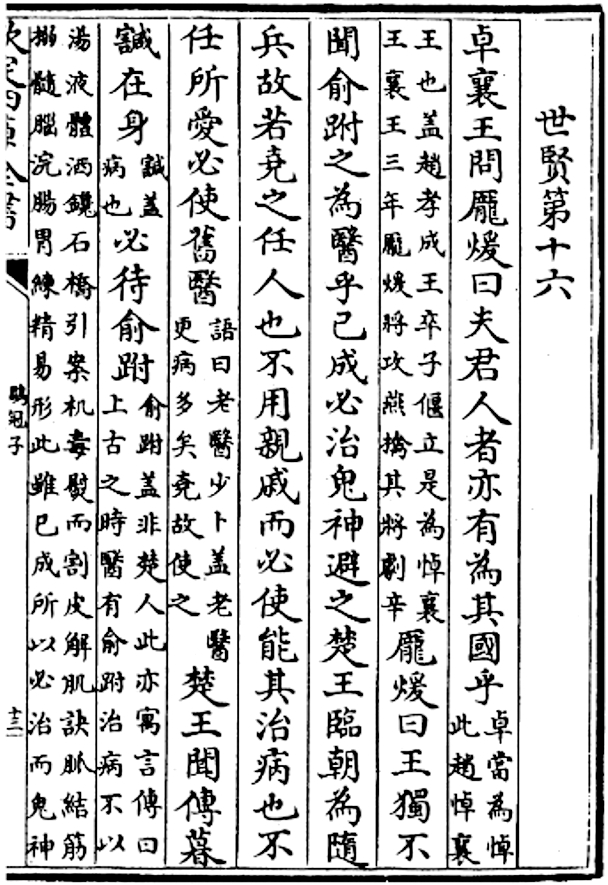 世賢第十六
卓襄王問龎煖曰夫君人者亦有為其國乎
卓當為悼
此趙悼襄
王也盖趙孝成王卒子偃立是為悼襄
王襄王三年龎煖將攻燕擒其將劇辛
龎煖曰王獨不
聞俞跗之為醫乎已成必治鬼神避之楚王臨朝為隨
兵故若堯之任人也不用親戚而必使能其治病也不
任所愛必使舊醫
語曰老醫少卜盖老醫
更病多矣堯故使之
楚王聞傳暮
𧫷在身
𧫷盖
病也
必待俞跗
俞跗盖非楚人此亦寓言傳曰
上古之時醫有俞跗治病不以
湯液醴洒鑱石橋引案机毒熨而割皮解肌訣脈結筋
搦髓腦浣腸胃練精易形此雖已成所以必治而鬼神
欽定四庫全書
鶡冠子
十三